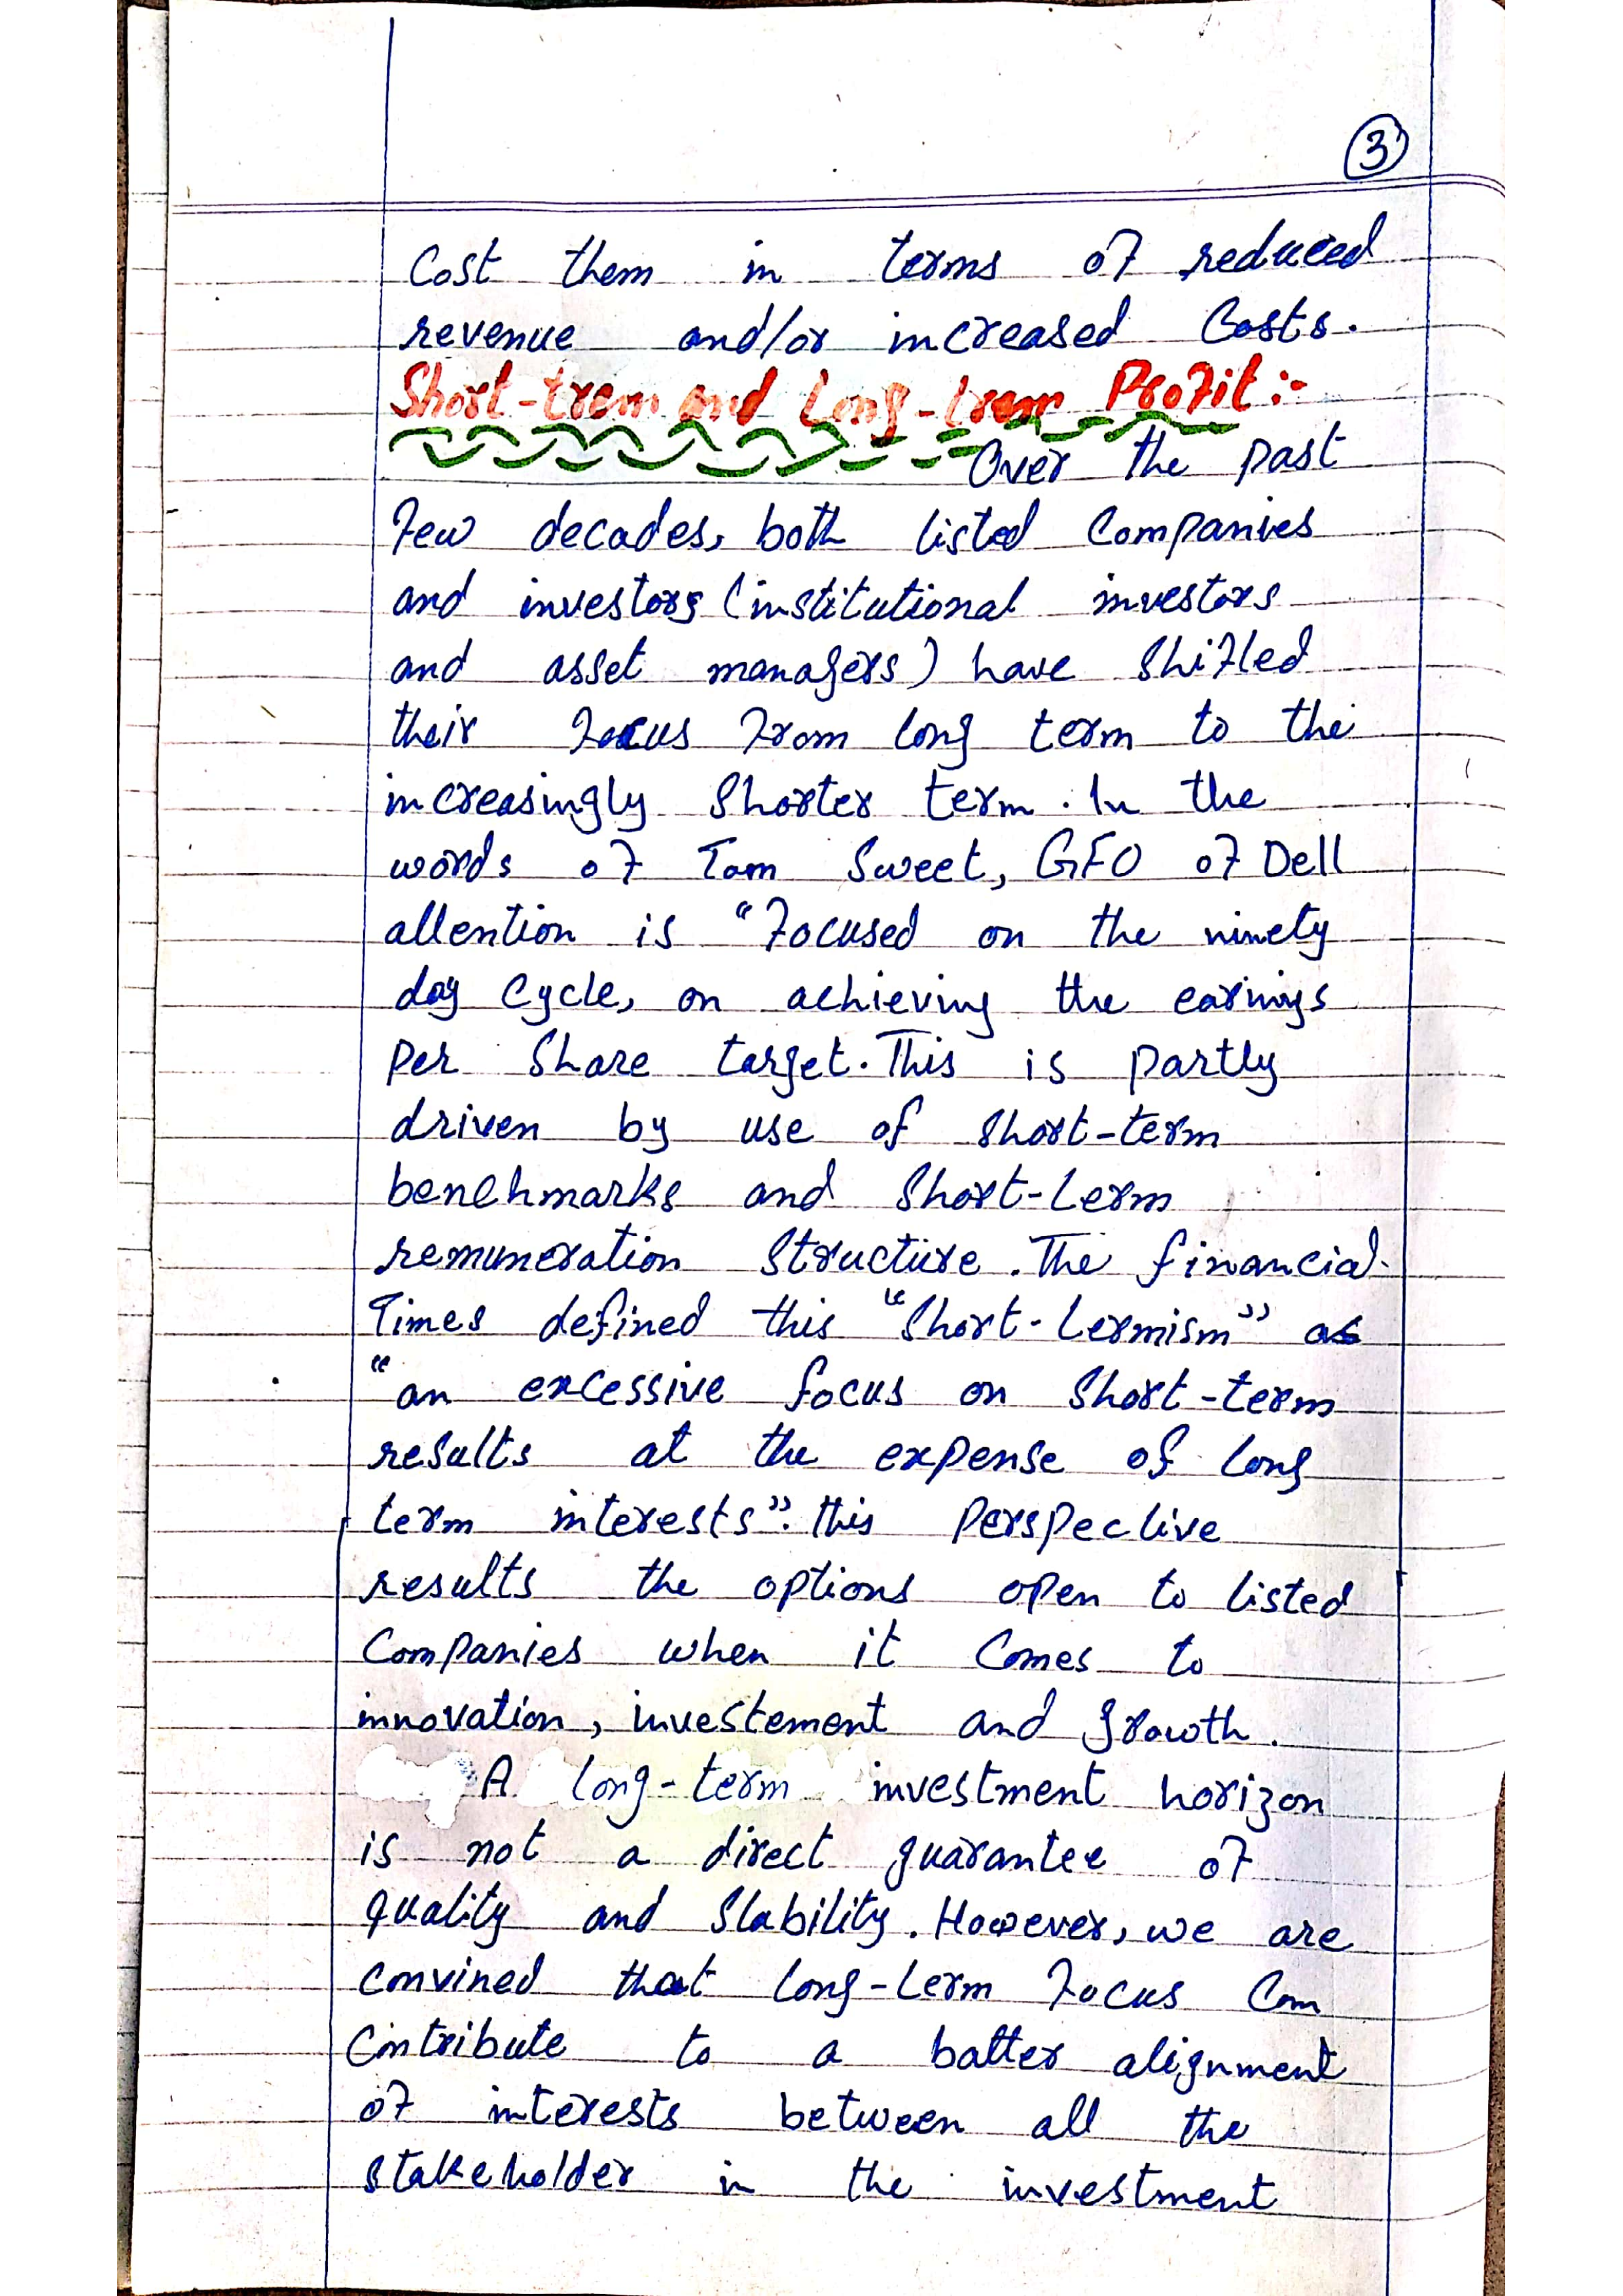 3
Cost them in terms of reduced
revenue and/or increased Costs.
Short-trem and Long-trem Profit:-
Over the past
few decades, both listed Companies
and investors (institutional investors
and asset managers) have Shifted
their focus from long term to the
increasingly Shorter term. In the
words of Tom Sweet, CFO of Dell
attention is "focused on the ninety
day Cycle, on achieving the earnings
Per Share target. This is partly
driven by use of short-term
benchmarks and Short-term
remuneration Structure. The financial
Times defined this "Short-termism" as
"an excessive focus on Short-term
results at the expense of long
term interests". this Perspective
results the options open to listed
Companies when it Comes to
innovation, investement and growth.
A long-term investment horizon
is not a direct guarantee of
quality and Stability. However, we are
convined that long-term focus Can
Contribute to a batter alignment
of interests between all the
stakeholder in the investment